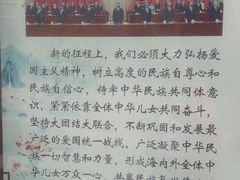 新的征程上，我们必须大力弘扬爱
国主义精神，树立高度的民族自尊心和
民族自信心，铸牢中华民族共同体意
识，紧紧依靠全体中华儿女共同奋斗，
坚持大团结大联合，不断巩固和发展最
广泛的爱国统一战线，广泛凝聚中华民
族一切智慧和力量，形成海内外全体中
华儿女万众一心、共襄民族复兴伟